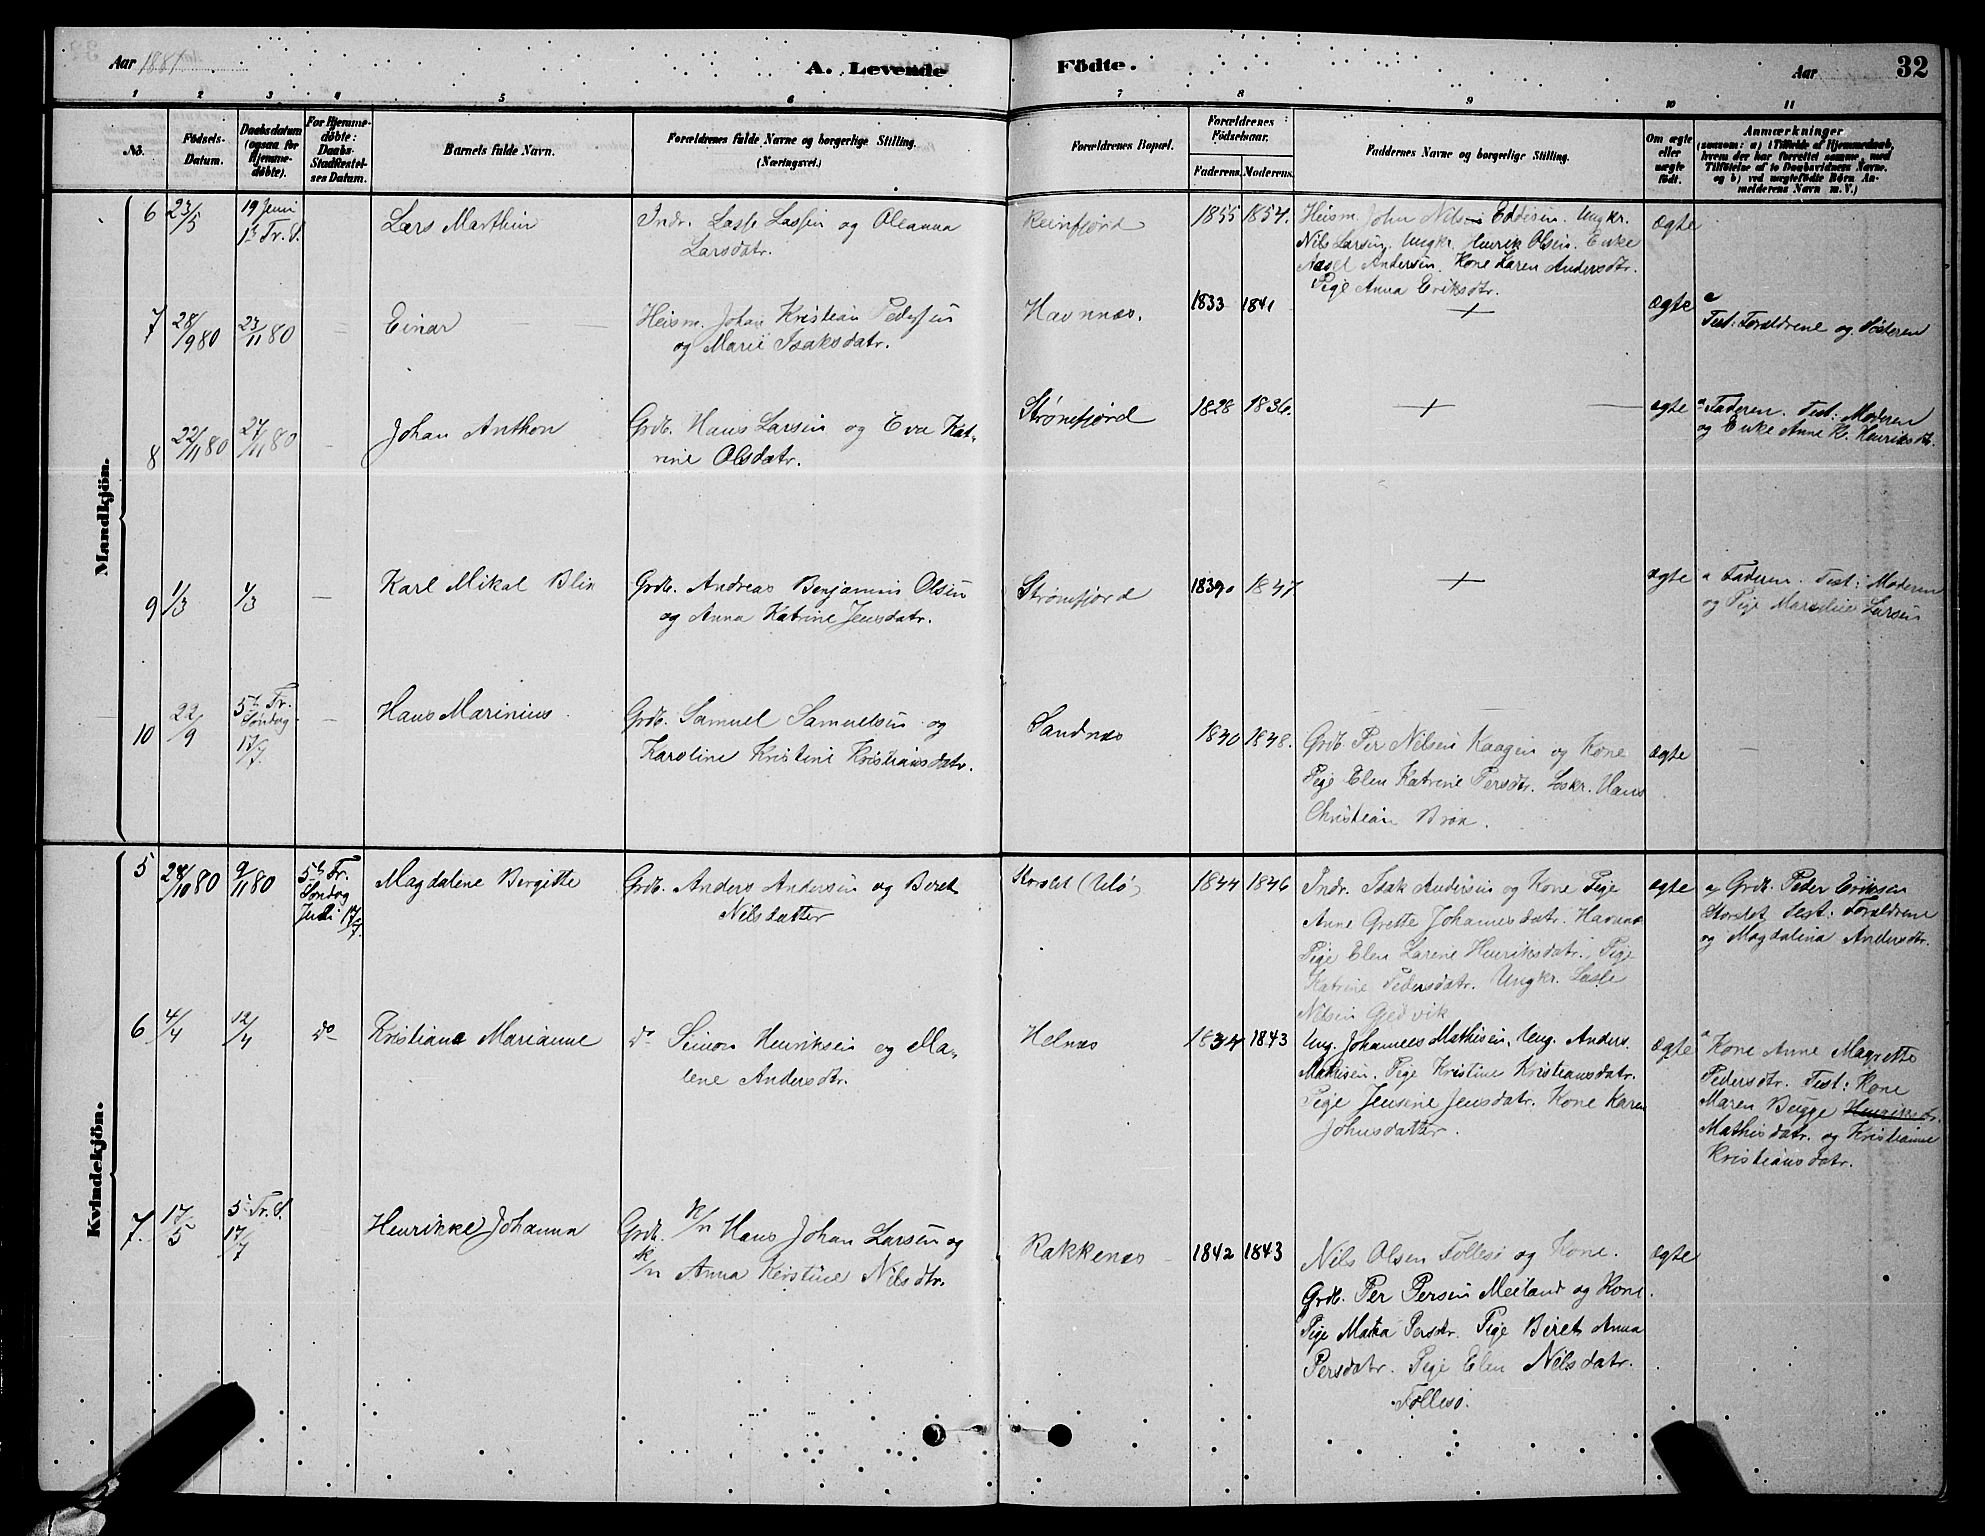 Aar 1881
A. Levende
Födte.
Aar
32
1 2 3 4 5 6 7 8 9 10 11
No.
Födsels-
Datum.
Daabsdatum
(ogsaa for
Hjemme-
döbte).
For Hjemme-
döbte:
Daabs-
Stadfæstel-
ses Datum.
Barnets fulde Navn.
Forældrenes fulde Navne og borgerlige Stilling.
(Næringsvei.)
Forældrenes Bopæl.
Forældrenes
Födselsaar.
Faderens. Moderens.
Faddernes Navne og borgerlige Stilling.
Om ægte
eller
uægte
födt.
Anmærkninger
(saasom: a) i Tilfælde af Hjemmedaab,
hvem der har forrettet samme, med
Tilföielse af to Daabsvidners Navne.
og b) ved uægtefödte Börn An-
melderens Navn m. V.)
Mandkjön.
6
23/5
19 Juni
1ste Tr. S.
Lars Marthin
Indr. Lasse Lassen og Oleanna
Larsdatr.
Reinfjord
1855 1854.
Heism. John Nilsen Eddisen. Ungkr.
Nils Larsen. Ungkr. Henrik Olsen. Enke
Andersen. Kone Karen Andersdtr.
Pige Anna Eriksdtr.
Ægte
7
28/9 80
23/11 80
–
Einar
Heism. Johan Kristian Pedersen
og Marie Isaksdatr.
Havnnæs.
1833 1841
+
Ægte
a
Test: Forældrene og Söderen
8
22/11 80
27/11 80
–
Johan Anthon
Grdb. Hans Larsen og Eva Kat-
rine Olsdatr.
Strömfjord
1828 1836.
+
ægte
a Faderen. Test: Moderen
og Enke Anne K. Henriksdtr.
9
1/3
4/3
–
Karl Mikal Blix
Grdb. Andreas Benjamin Olsen
og Anna Katrine Jensdatr.
Strömfjord
1839 1847
+
ægte
a Faderen. Test: Moderen
og Pige Larsen
10
22/9
5te Tr.
Söndag
17/7.
–
Hans Marinius
Grdb. Samuel Samuelsen og
Karoline Kristine Kristiansdatr.
Sandnæs
1840 1848.
Grdb. Per Nilsen Kaagen og Kone
Pige Elen Katrine Persdtr. Löskr. Hans
Christian Brox.
ægte
–
Kvindekjön.
5
28/10 80
9/11 80
5te Tr.
Söndag
Juli 17/7.
Magdalene Bergitte
Grdb. Anders Andersen og Beret
Nilsdatter
(Ulö)
1844 1846
Indr. Isak Andersen og Kone Pige
Anne Grette Johannesdatr. Havnnæs
Pige Elen Larene Henriksdatr. Pige
Katrine Pedersdatr. Ungkr. Lasse
Nilsen Gjedvik
ægte
a Grdb. Peder Eriksen
Storslet Test: Forældrene
og Magdalina Andersdtr.
6
4/4
12/4
do
Kristiane Marianne
do Simon Henriksen og Ma-
lene Andersdtr.
Helnæs
1834 1843
Ung. Johannes Mathisen, Ung. Anders
Mathisen. Pige Kristine Kristiansdatr.
Pige Jensine Jensdatr. Kone Karen
Johnsdatter.
Ægte
a
Kone Anne Magrette
Pedersdtr. Test: Kone
Maren Bugge
Mathisdatr. og Kristianne
Kristiansdatr.
7.
17/5
5te Tr. S.
17/7
Henrikke Johanna
Grdb. k/n Hans Johan Larsen og
k/n Anna Kerstine Nilsdtr.
Rakkenæs
1842 1843
Nils Olsen Follesö og Kone.
Grdb. Per Persen Meiland og Kone.
Pige Persdtr. Pige Beret Anna
Persdatr. Pige Elen Nilsdatr.
Follesö.
ægte